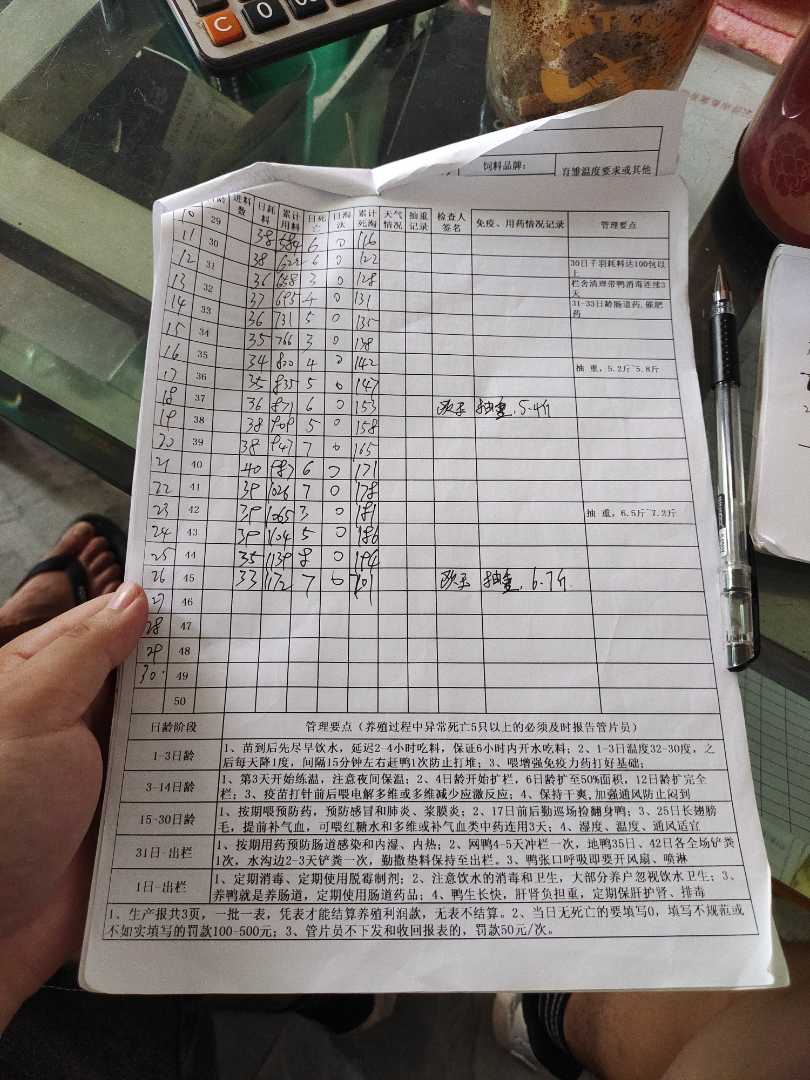 C
0
饲料品牌：
育雏温度要求或其他
进料数 日耗料 累计用料 日死亡 日淘汰 累计死淘 天气情况 抽重记录 检查人签名 免疫、用药情况记录 管理要点
10 29
11 30 38 684 6 0 116
12 31 38 722 6 0 122 30日千羽耗料达100包以上
13 32 36 658 3 0 128 栏舍清理带鸭消毒连续3天
14 33 37 695 4 0 131 31-33日龄肠道药,催肥药
15 34 36 731 5 0 135
16 35 35 766 3 0 138
17 36 34 800 4 0 142 抽 重，5.2斤~5.8斤
18 37 35 835 5 0 147
19 38 36 871 6 0 153 抽重.5.4斤
20 39 38 909 5 0 158
21 40 38 947 7 0 165
22 41 40 987 6 0 171
23 42 39 1026 7 0 178 抽 重，6.5斤~7.2斤
24 43 39 1065 3 0 181
25 44 39 1104 5 0 186
26 45 35 1139 8 0 194
27 46 33 1172 7 0 201 抽重.6.7斤.
28 47
29 48
30 49
50
日龄阶段 管理要点（养殖过程中异常死亡5只以上的必须及时报告管片员）
1-3日龄 1、苗到后先尽早饮水，延迟2-4小时吃料，保证6小时内开水吃料；2、1-3日温度32-30度，之
后每次降1度，间隔15分钟左右赶鸭1次防止打堆；3、喂增强免疫力药打好基础；
3-14日龄 1、第3天开始练温，注意夜间保温；2、4日龄开始扩栏，6日龄扩至50%面积，12日龄扩完全
栏；3、疫苗打针前后喂电解多维或多维减少应激反应；4、保持干爽,加强通风防止闷到
15-30日龄 1、按期喂预防药，预防感冒和肺炎、浆膜炎；2、17日前后勤巡场捡翻身鸭；3、25日长翅膀
毛，提前补气血，可喂红糖水和多维或补气血类中药连用3天；4、湿度、温度、通风适宜
31日-出栏 1、按期用药预防肠道感染和内湿、内热；2、网鸭4-5天冲栏一次，地鸭35日、42日各全场铲粪
1次，水沟边2-3天铲粪一次，勤撒垫料保持至出栏。3、鸭张口呼吸即要开风扇、喷淋
1日-出栏 1、定期消毒、定期使用脱霉制剂；2、注意饮水的消毒和卫生，大部分养户忽视饮水卫生；3、
养鸭就是养肠道，定期使用肠道药品；4、鸭生长快，肝肾负担重，定期保肝护肾、排毒
1、生产报共3页，一批一表，凭表才能结算养殖利润款，无表不结算。2、当日无死亡的要填写0，填写不规范或
不如实填写的罚款100-500元；3、管片员不下发和收回报表的，罚款50元/次。